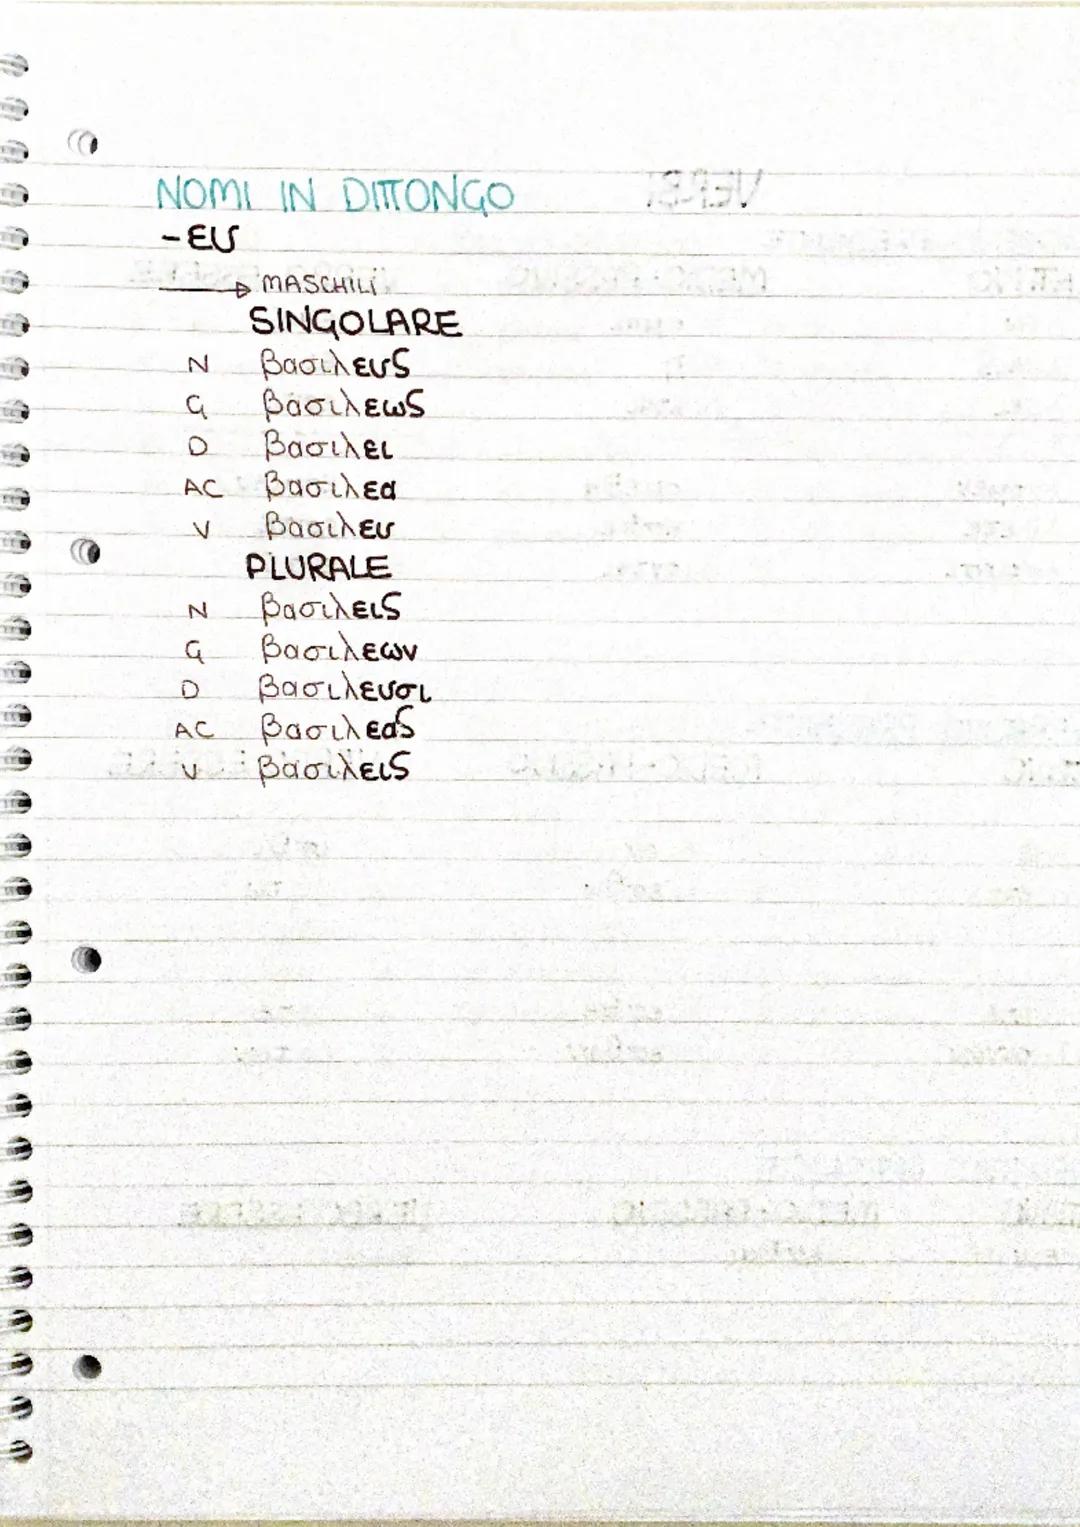 NOMI IN DITTONGO
-ευ
→ MASCHILI
SINGOLARE
N βασιλευς
G βασιλεως
D βασιλει
AC βασιλεα
V βασιλευ
PLURALE
N βασιλεις
G βασιλεων
D βασιλευσι
AC βασιλεας
V βασιλεις